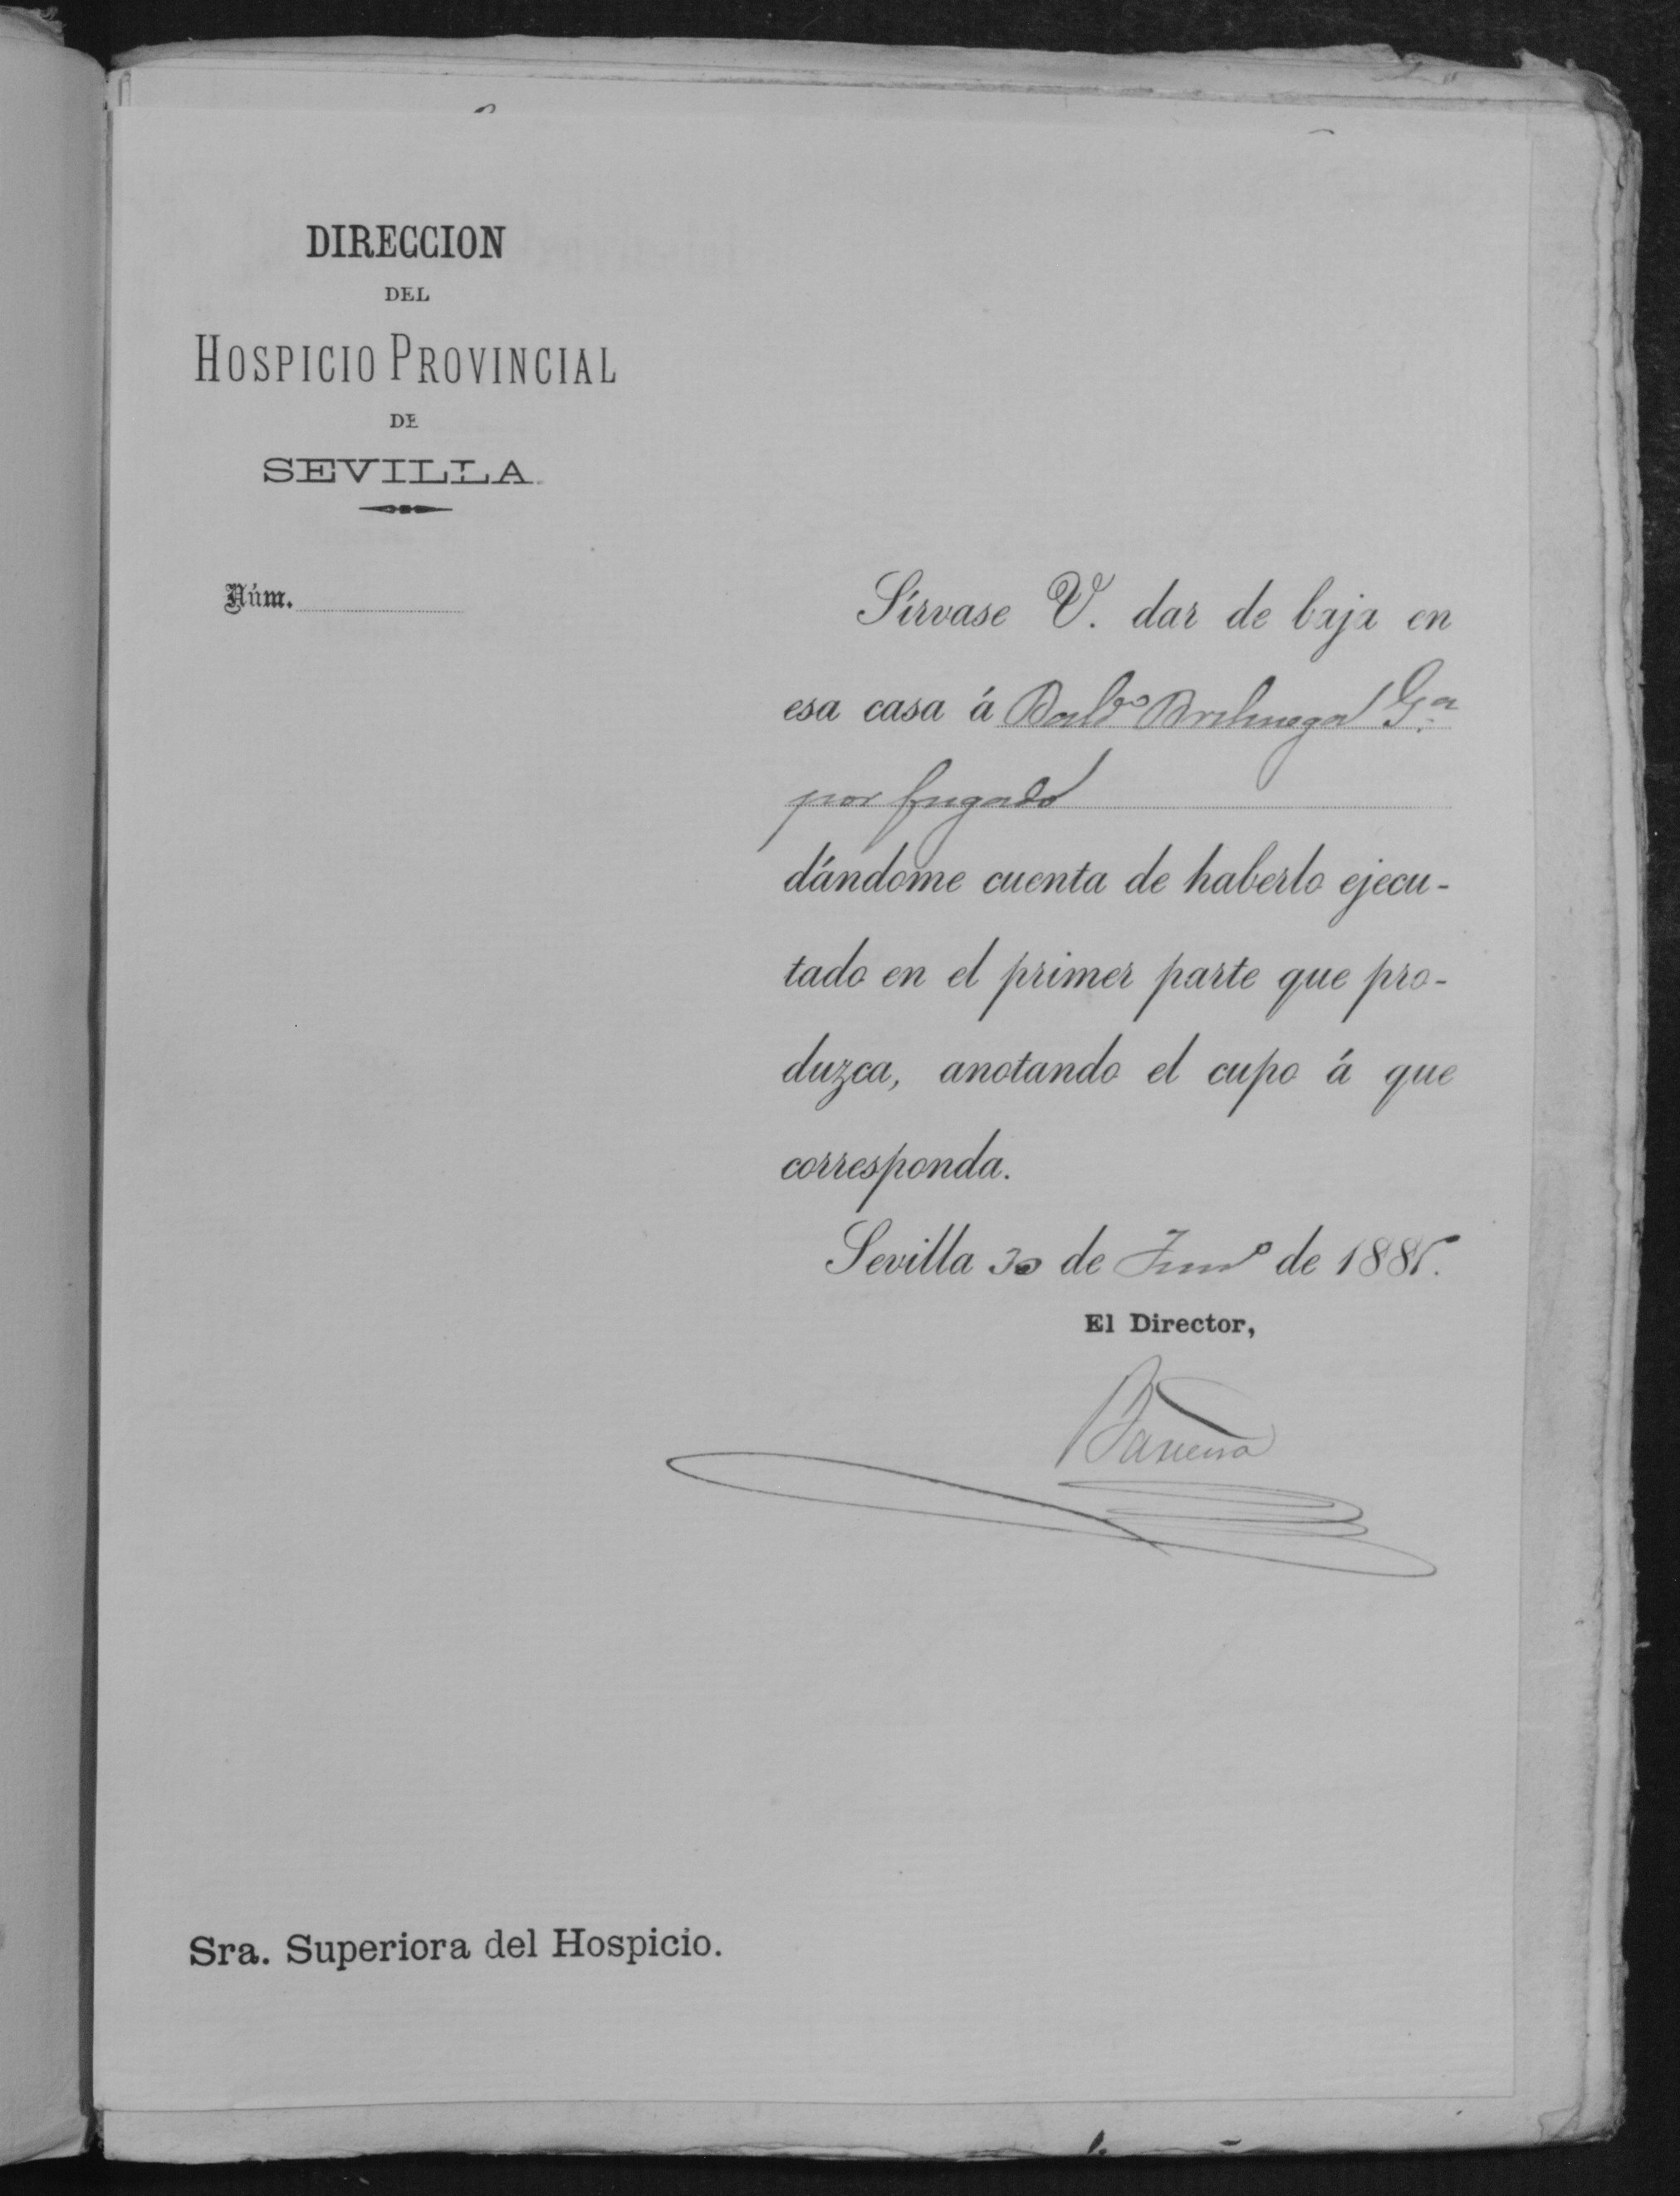 DIRECCION
DEL
HOSPICIO PROVINCIAL
DE
SEVILLA.
Núm.
Sírvase V. dar de baja en
esa casa á Baldo Brihuega Ga
por fugado
dándome cuenta de haberlo ejecu-
tado en el primer parte que pro-
duzca, anotando el cupo á que
corresponda.
Sevilla 30 de de 188
El Director,
Sra. Superiora del Hospicio.